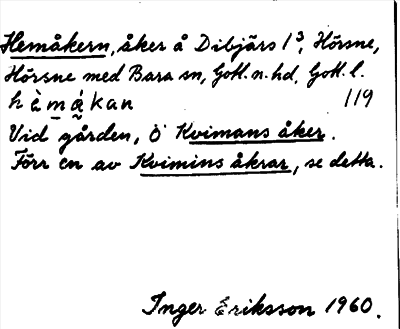 Hemåkern, åker å Dibjärs 1³, Hörsne,
Hörsne med Bara sn, Gotl. n. hd, Gotl. l.
hèmákan 119
Vid gården, ö Kvimans åker.
Förr en av Kvimins åkrar, se detta.
Inger Eriksson 1960.